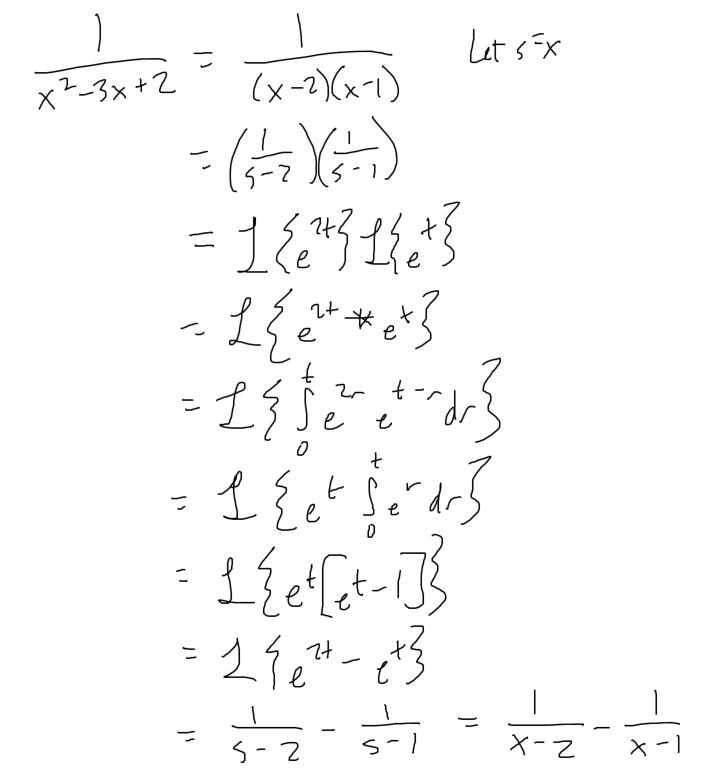 1/(x²-3x+2) = 1/((x-2)(x-1)) Let s=x
= (1/(s-2))(1/(s-1))
= ℒ{e^{2t}}ℒ{e^t}
= ℒ{e^{2t} * e^t}
= ℒ{∫₀^t e^{2r} e^{t-r} dr}
= ℒ{e^t ∫₀^t e^r dr}
= ℒ{e^t[e^t-1]}
= ℒ{e^{2t} - e^t}
= 1/(s-2) - 1/(s-1) = 1/(x-2) - 1/(x-1)